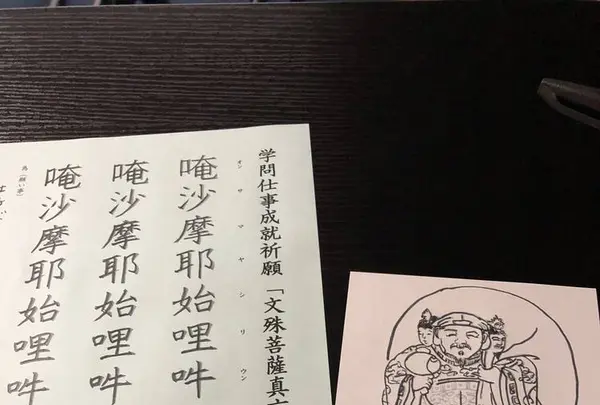 学問仕事成就祈願「文殊菩薩真
オンサマヤシリウン
唵沙摩耶始哩吽
唵沙摩耶始哩吽
唵沙摩耶始哩吽
為(願い事)